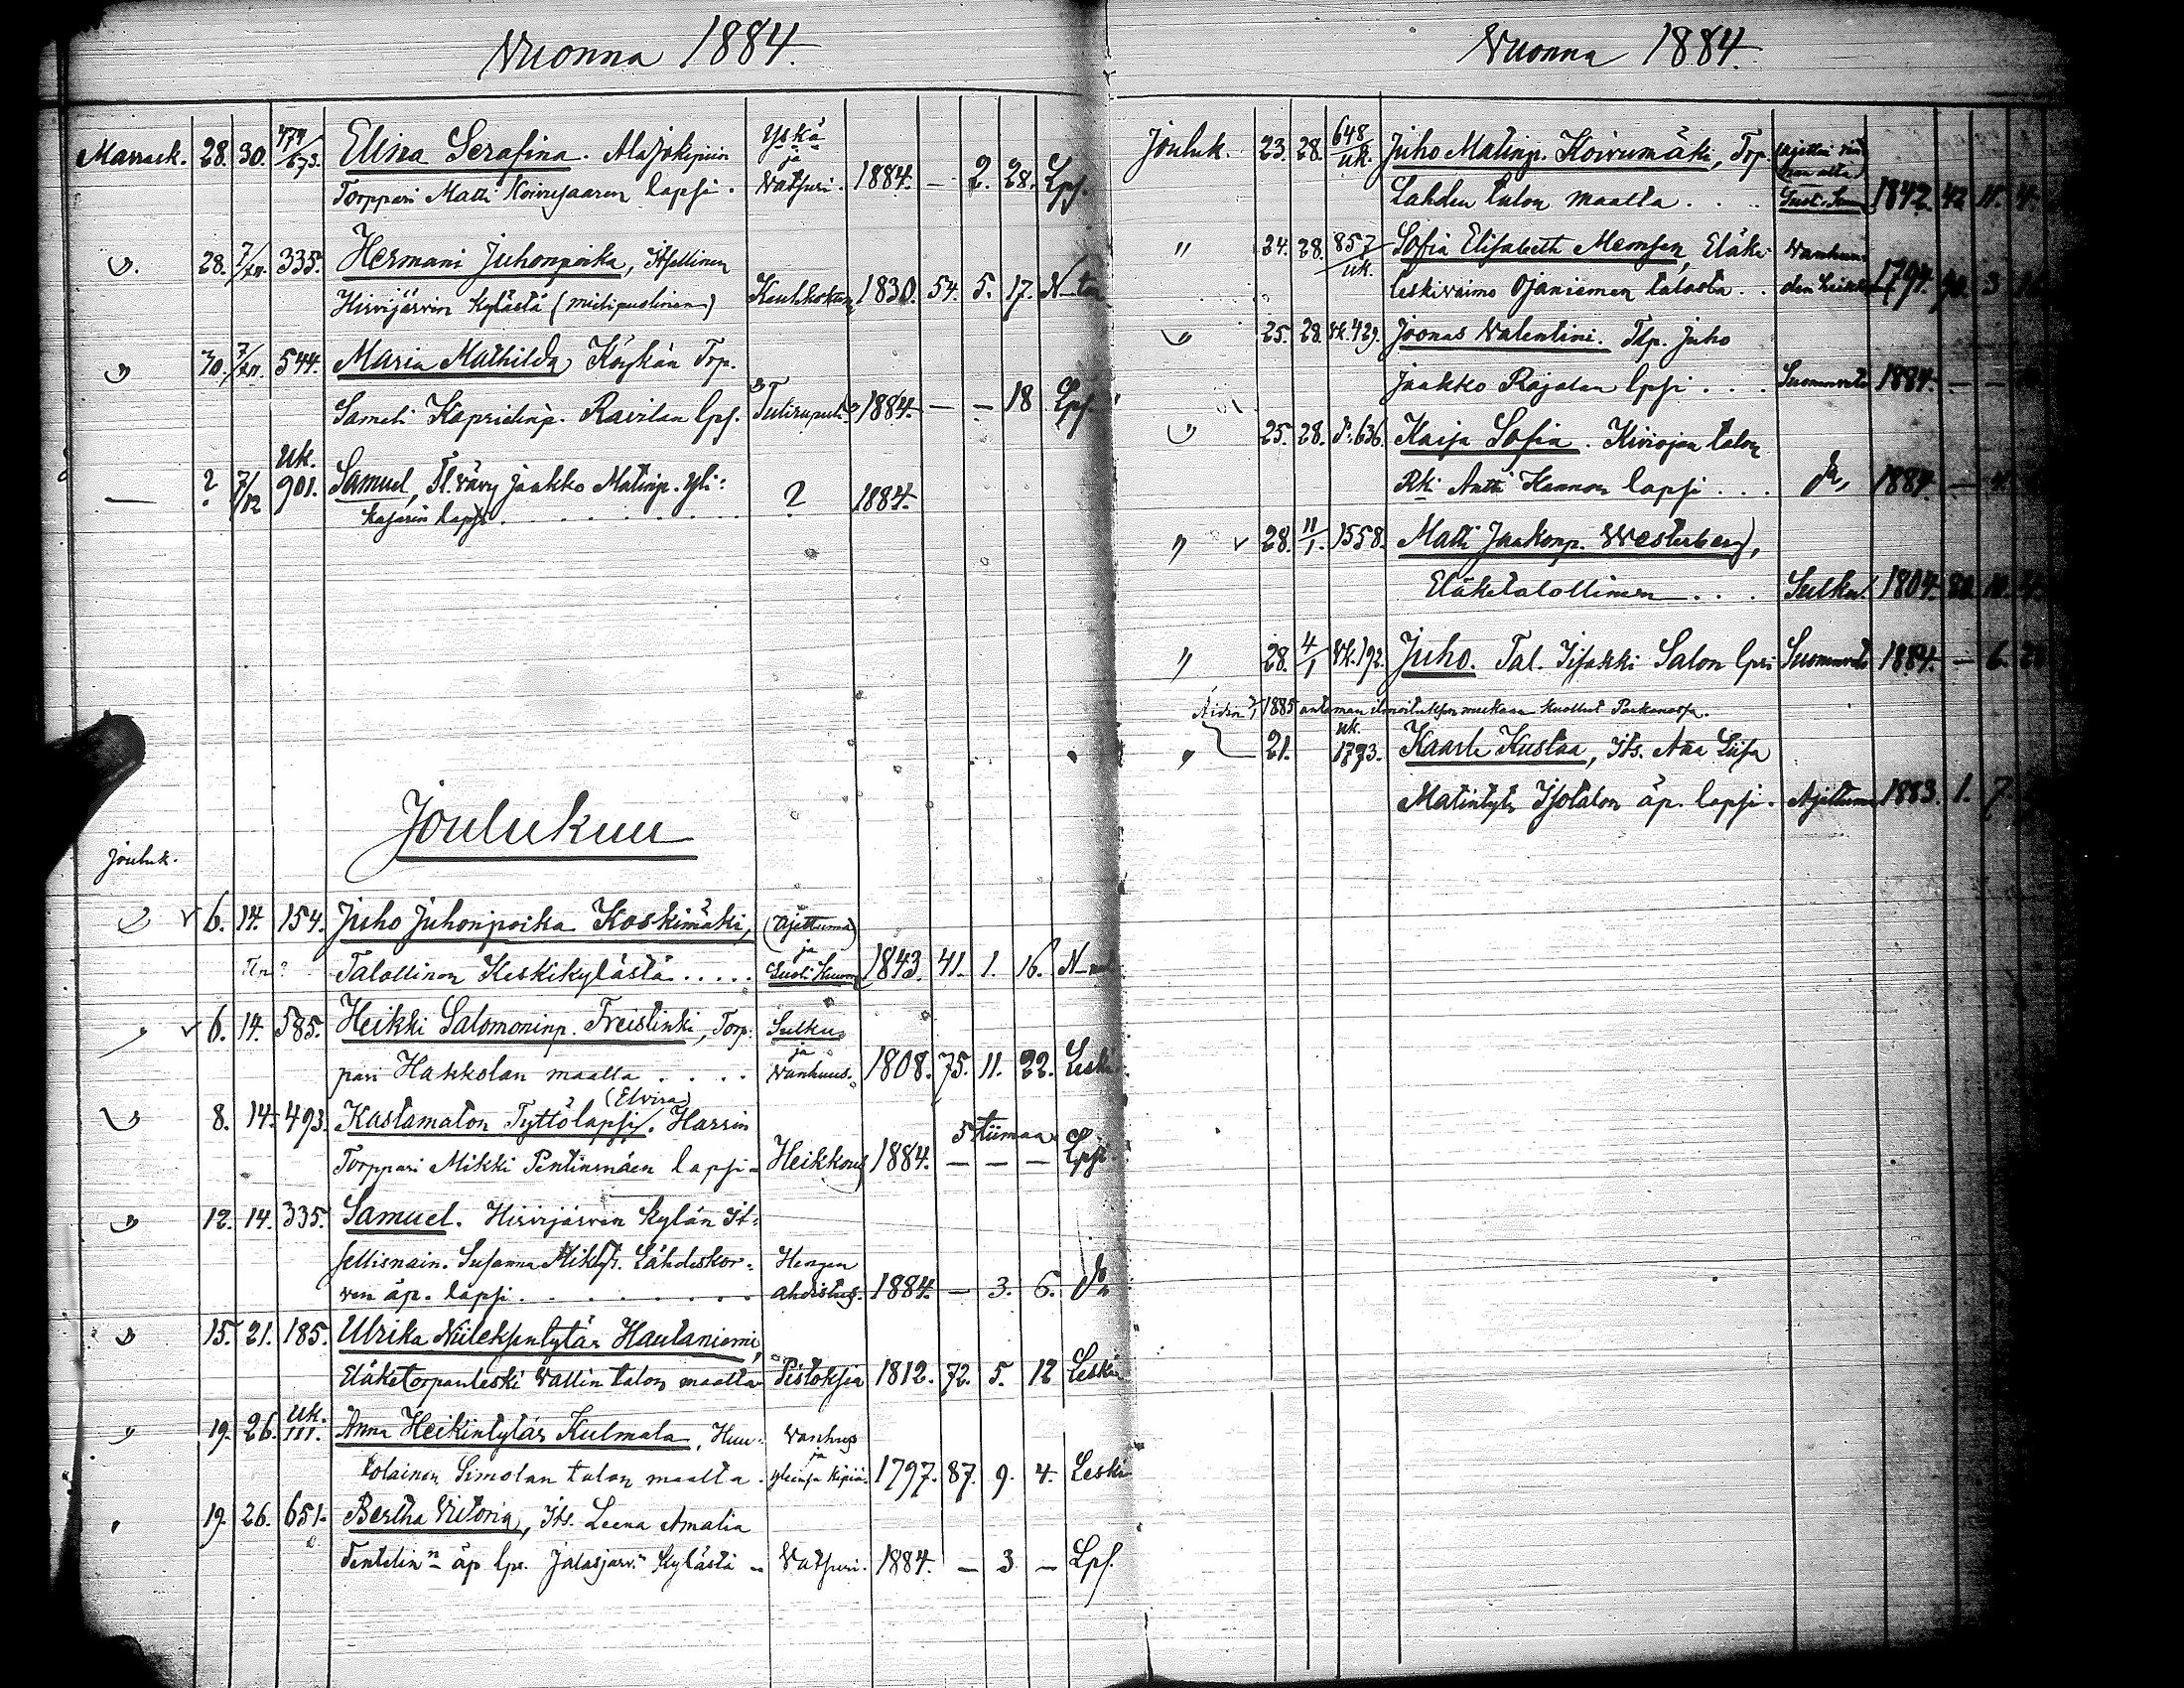 Vuonna 1884.
Marrask. 28. 30. 479/673. Elina Serafina. Alajokipiin Yskä ja
Torppari Matti Koivusaaren lapsi. Vatsuri. 1884. — 2. 28. Lps.
". 28. 7/XII. 335. Hermani Juhonpoika, Itsellinen
Hirvijärvin kylästä (mielipuolinen) Keuhkokuu 1830. 54. 5. 17. N-ton
" 30. 7/XII. 544. Maria Mathilda, Köykän Torp.
Sameli Kaprielinp. Ravilan lps. Tulirupuli 1884. — — 18 Lps.
Uk.
— ? 7/12 901. Samuel, Tl. vävy Jaakko Matinp. Yli=
kasarin lapsi . . . . . . . . ? 1884.
Joulukuu
Jouluk.
" v 6. 14. 154. Juho Juhonpoika Koskimäki, (Ajettuma) ja
Talollinen Keskikylästä . . . . . 1843. 41. 1. 16.
" v 6. 14. 585. Heikki Salomoninp. Freistinki, Torp= Sulku ja
pari Hakkolan maalta . . . . Vanhuus. 1808. 75. 11. 22. Leski.
(Elvira)
" 8. 14. 493. Kastamaton Tyttölapsi. Harrin 5 tiimaa
Torppari Mikki Pentinmäen lapsi - Heikkous 1884. — — — Lpsi.
" 12. 14. 335. Samuel. Hirvijärven kylän It=
sellisnain. Susanna Mikk.t. Lähdeskor= Hengen
ven äp. lapsi . . . . . . . . ahdistus. 1884. — 3. 6. do
" 15. 21. 185. Ulrika Niileksentytär Hautaniemi,
Eläketorpanleski Vallin talon maalta Pistoksia 1812. 72. 5. 12 Leski
Uk.
" 19. 26. 111. Anna Heikintytär Kulmala, Huu= Vanhus ja
tolainen Simolan talon maalta. 1797. 87. 9. 4. Leski
" 19. 26. 651. Bertha Vitoria, Its. Leena Amalia
äp lps. Jalasjärv.n kylästä - Vatsuri. 1884. — 3 — Lps.
Vuonna 1884.
Jouluk. 23. 28. 648/uk. Juho Matinp. Koivumäki, Torp.
Lahden talon maalta . . . 1842. 42 11. 4.
" 24. 28. 857/uk. Sofia Elisabeth Memsen, Eläke- Vanhuu-
leskivaimo Ojaniemen talosta . . den heikko 1794. 90. 3
" 25. 28. Uk. 429. Joonas Valentini. Tlp. Juho
Jaakko Rajalan lpsi . . . Suonenveto 1884. — —
" 25. 28. S: 636. Kaisa Sofia. Kiviojan talon
Rki Antti Hannon lapsi . . . do 1884. —
" v 28. 11/1. 1558. Matti Jaakonp. Westerberg,
Eläketalollinen . . . Sulku. 1804. 80. 10.
" 28. 4/1 Uk. 192. Juho. Tal. Iisakki Salon lpsi Suonenveto 1884. — 6.
Äidin 1885 antaman ilmoituksen mukaan kuollut Parkanossa.
uk.
" 21. 1773. Kaarle Kustaa, Its. Ana Liisa
Matintytr Isotalon äp. lapsi. Ajettuma 1883. 1. 7